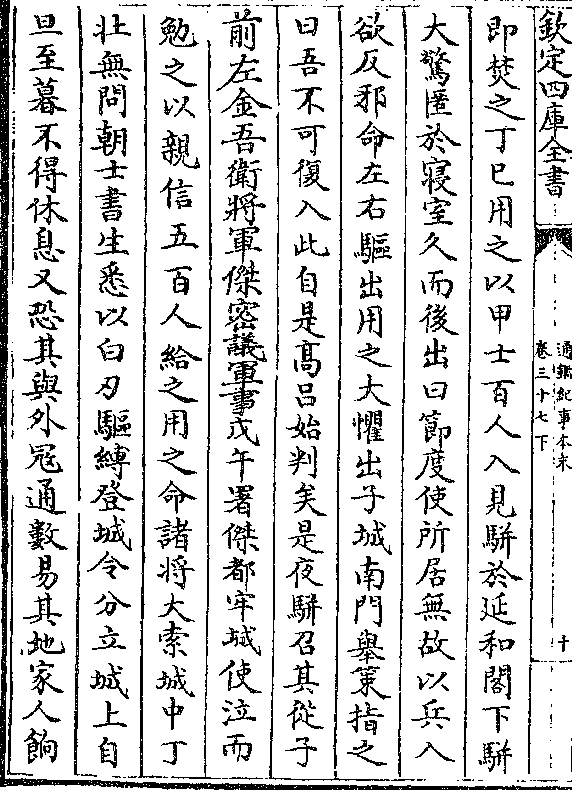 欽定四庫全書
通鑑紀事本末
卷三十七下
十
即焚之丁巳用之以甲士百人入見駢於延和閣下駢
大驚匿於寢室久而後出曰節度使所居無故以兵入
欲反邪命左右驅出用之大懼出子城南門舉䇿指之
曰吾不可復入此自是高吕始判矣是夜駢召其從子
前左金吾衛將軍傑密議軍事戊午署傑都牢城使泣而
勉之以親信五百人給之用之命諸將大索城中丁
壮無問朝士書生悉以白刃驅縛登城令分立城上自
旦至暮不得休息又恐其與外冦通數易其地家人餉